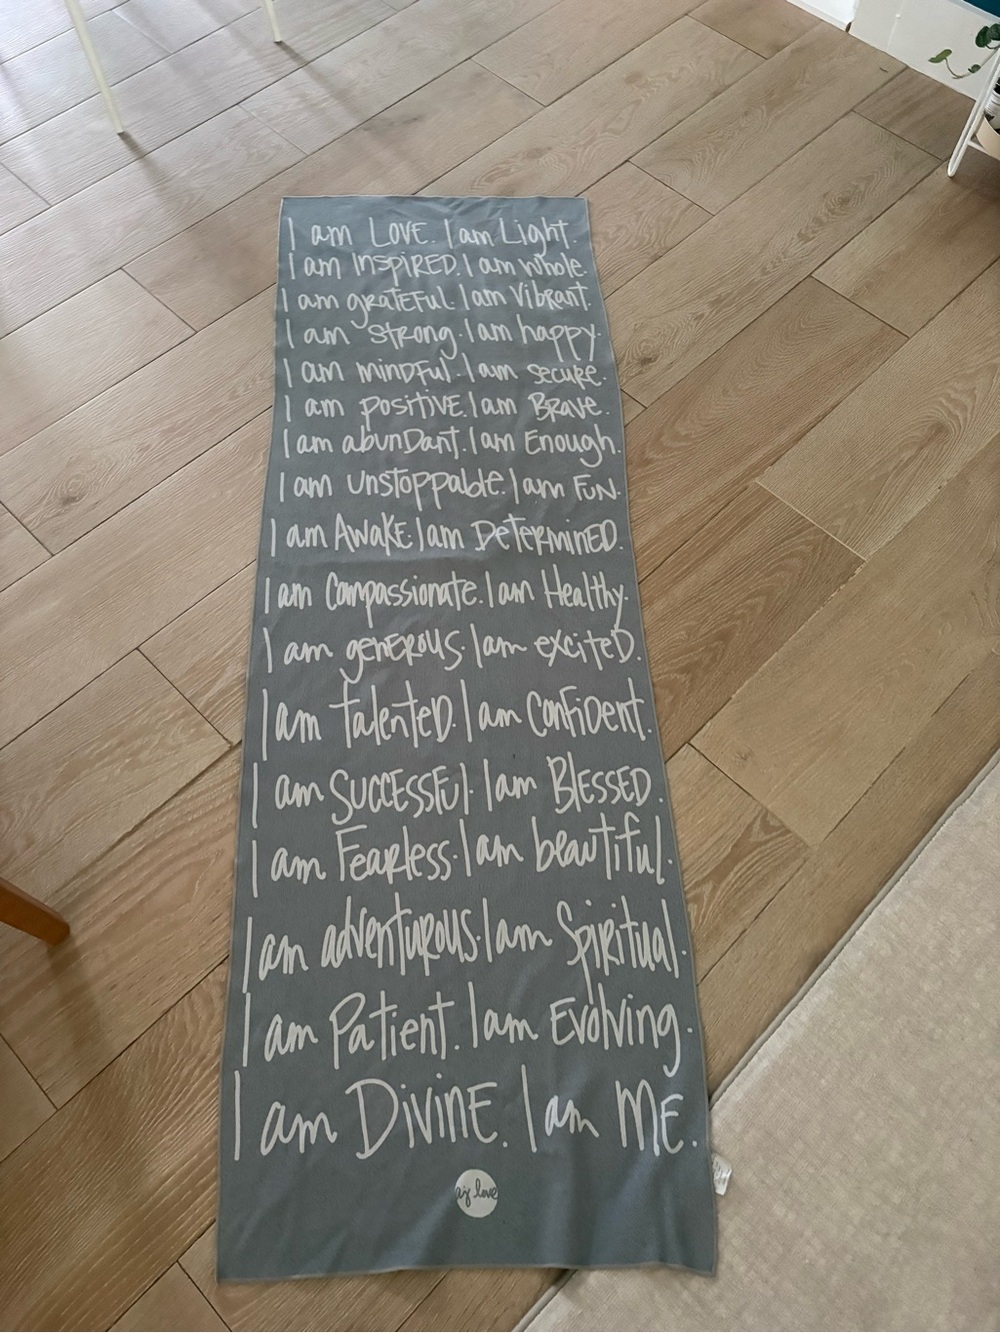 I am LOVE. I am Light.
I am INSPIRED. I am whole.
I am grateful. I am Vibrant.
I am strong. I am happy.
I am minDful. I am secure.
I am positive. I am Brave.
I am abunDant. I am Enough.
I am unstoppable. I am Fun.
I am Awake. I am DetermineD.
I am Compassionate. I am Healthy.
I am generous. I am exciteD.
I am talenteD. I am ConfiDent.
I am Successful. I am BLESSED.
I am Fearless. I am beautiful.
I am adventurous. I am Spiritual.
I am Patient. I am Evolving.
I am Divine. I am ME.
aj love